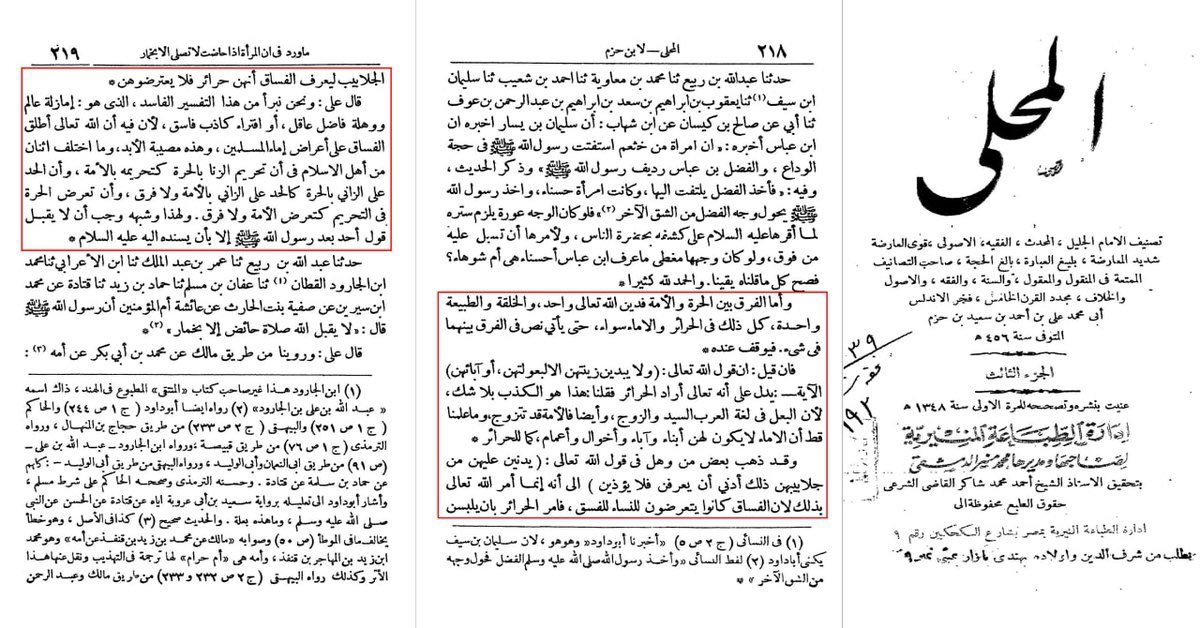 المحلى
تصنيف الامام الجليل ، المحدث ، الفقيه ، الاصولى ، قوى العارضة
شديد المعارضة ، بليغ العبارة ، بالغ الحجة ، صاحب التصانيف
الممتعة فى المنقول والمعقول ، والسنة ، والفقه ، والاصول
والخلاف ، مجدد القرن الخامس ، فخر الاندلس
أبى محمد على بن أحمد بن سعيد بن حزم
المتوفى سنة ٤٥٦ ھ
الجزء الثالث
عنيت بنشره وتصحيحه للمرة الاولى سنة ١٣٤٨ ھ
إدارة الطباعة المنيرية
لصاحبها ومديرها محمد منير الدمشقى
بتحقيق الاستاذ الشيخ أحمد محمد شاكر القاضى الشرعى
حقوق الطبع محفوظة الى
ادارة الطباعة المنيرية بمصر بشارع الكحكيين رقم ٩
يطلب من شرف الدين واولاده بهندى بازار بمبى نمبر ٩
٣٩
فقه
١٩٢
٢١٨ المحلى — لابن حزم
حدثنا عبدالله بن ربيع ثنا محمد بن معاوية ثنا احمد بن شعيب ثنا سليمان
ابن سيف (١) ثنا يعقوب بن ابراهيم بن سعد بن ابراهيم بن عبد الرحمن بن عوف
ثنا أبي عن صالح بن كيسان عن ابن شهاب : أن سليمان بن يسار اخبره ان
ابن عباس أخبره : « ان امراة من خثعم استفتت رسول الله ﷺ فى حجة
الوداع ، والفضل بن عباس رديف رسول الله ﷺ » وذكر الحديث ،
وفيه : « فأخذ الفضل يلتفت اليها ، وكانت امرأة حسناء ، واخذ رسول الله
ﷺ يحول وجه الفضل من الشق الآخر (٢) » فلو كان الوجه عورة يلزم ستره
لما أقرها عليه السلام على كشفه بحضرة الناس ، ولأمرها أن تسبل عليه
من فوق ، ولو كان وجهها مغطى ما عرف ابن عباس أحسناء هى أم شوهاء ؟
فصح كل ما قلناه يقينا . والحمد لله كثيرا *
وأما الفرق بين الحرة والأمة فدين الله تعالى واحد ، والخلقة والطبيعة
واحدة ، كل ذلك فى الحرائر والاماء سواء ، حتى يأتي نص فى الفرق بينهما
فى شىء . فيوقف عنده *
فان قيل : ان قول الله تعالى : ( ولا يبدين زينتهن الا لبعولتهن ، أو آبائهن )
الآية — : يدل على أنه تعالى أراد الحرائر فقلنا : هذا هو الكذب بلا شك ،
لأن البعل فى لغة العرب السيد والزوج ، وأيضا فالأمة قد تتزوج ، وما علمنا
قط أن الاماء لا يكون لهن أبناء وآباء وأخوال وأعمام ، كما للحرائر *
وقد ذهب بعض من وهل فى قول الله تعالى : ( يدنين عليهن من
جلابيبهن ذلك أدنى أن يعرفن فلا يؤذين ) الى أنه إنما أمر الله تعالى
بذلك لان الفساق كانوا يتعرضون للنساء للفسق ، فامر الحرائر بان يلبسن
(١) فى النسائى ( ج ٢ ص ٥ ) « أخبرنا أبو داود » وهو هو ، لان سليمان بن سيف
يكنى أبا داود (٢) لفظ النسائى « وأخذ رسول الله صلى الله عليه وسلم الفضل فحول وجهه
من الشق الآخر » *
ما ورد فى ان المرأة اذا حاضت لا تصلى الا بخمار ٢١٩
الجلابيب ليعرف الفساق أنهن حرائر فلا يعترضوهن *
قال على : ونحن نبرأ من هذا التفسير الفاسد ، الذى هو : إما زلة عالم
ووهلة فاضل عاقل ، أو افتراء كاذب فاسق ، لأن فيه أن الله تعالى أطلق
الفساق على أعراض إماء المسلمين ، وهذه مصيبة الأبد ، وما اختلف اثنان
من أهل الاسلام فى أن تحريم الزنا بالحرة كتحريمه بالأمة ، وأن الحد
على الزاني بالحرة كالحد على الزاني بالأمة ولا فرق ، وأن تعرض الحرة
فى التحريم كتعرض الأمة ولا فرق . ولهذا وشبهه وجب أن لا يقبل
قول أحد بعد رسول الله ﷺ إلا بأن يسنده اليه عليه السلام *
حدثنا عبد الله بن ربيع ثنا عمر بن عبد الملك ثنا ابن الأعرابي ثنا محمد
ابن الجارود القطان (١) ثنا عفان بن مسلم ثنا حماد بن زيد ثنا قتادة عن محمد
ابن سيرين عن صفية بنت الحارث عن عائشة أم المؤمنين أن رسول الله ﷺ
قال : « لا يقبل الله صلاة حائض إلا بخمار » (٢) *
قال على : وروينا من طريق مالك عن محمد بن أبي بكر عن أمه (٣) :
(١) ابن الجارود هذا غير صاحب كتاب « المنتقى » المطبوع فى الهند ، ذاك اسمه
« عبد الله بن على بن الجارود » (٢) رواه ايضا أبو داود ( ج ١ ص ٢٤٤ ) والحاكم
( ج ١ ص ٢٥١ ) والبيهقى ( ج ٢ ص ٢٣٣ ) من طريق حجاج بن المنهال ، ورواه
الترمذى ( ج ١ ص ٧٦ ) من طريق قبيصة ، ورواه ابن الجارود — عبد الله بن على —
( ص ٩١ ) من طريق ابى النعمان وأبى الوليد ، ورواه البيهقى من طريق أبى الوليد — : كلهم
عن حماد بن سلمة عن قتادة . وحسنه الترمذى وصححه الحاكم على شرط مسلم ،
وأشار أبو داود الى تعليله برواية سعيد بن أبى عروبة اياه عن قتادة عن الحسن عن النبى
صلى الله عليه وسلم ، وما هذه بعلة . والحديث صحيح (٣) كذا فى الأصل ، وهو خطأ
يخالف ما فى الموطأ ( ص ٥٠ ) وصوابه « مالك عن محمد بن زيد بن قنفذ عن أمه » وهو محمد
ابن زيد بن المهاجر بن قنفذ ، وأمه هى « أم حرام » لها ترجمة فى التهذيب ونقل عنها هذا
الأثر وكذلك رواه البيهقى ( ج ٢ ص ٢٣٢ و ٢٣٣ ) من طريق مالك وعبد الرحمن